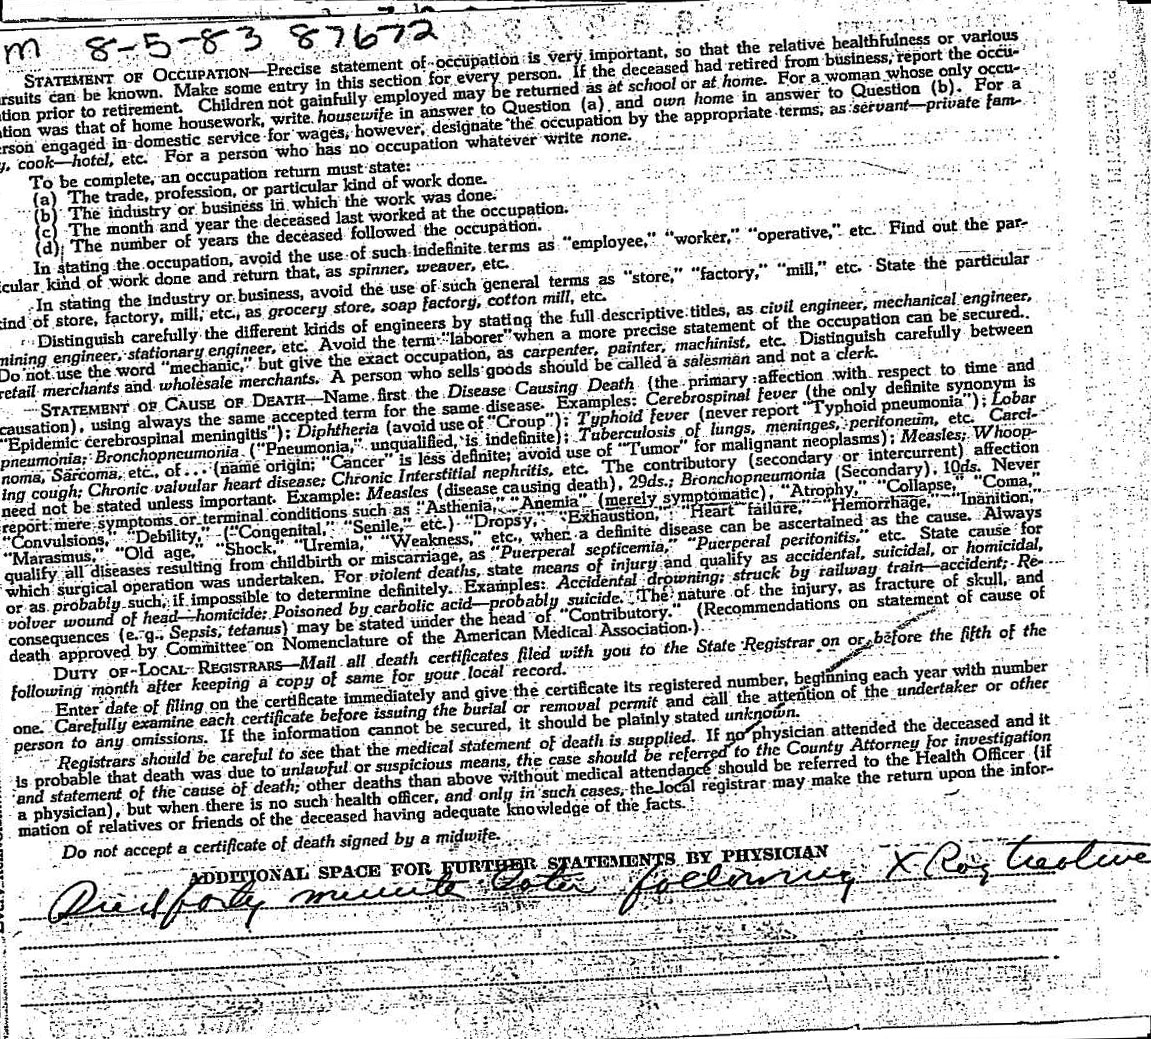 m 8-5-83 87672
STATEMENT OF OCCUPATION—Precise statement of occupation is very important, so that the relative healthfulness or various
rsuits can be known. Make some entry in this section for every person. If the deceased had retired from business, report the occu-
tion prior to retirement. Children not gainfully employed may be returned as at school or at home. For a woman whose only occu-
tion was that of home housework, write housewife in answer to Question (a) and own home in answer to Question (b). For a
rson engaged in domestic service for wages, however, designate the occupation by the appropriate terms, as servant—private fam-
y, cook—hotel, etc. For a person who has no occupation whatever write none.
To be complete, an occupation return must state:
(a) The trade, profession, or particular kind of work done.
(b) The industry or business in which the work was done.
(c) The month and year the deceased last worked at the occupation.
(d) The number of years the deceased followed the occupation.
In stating the occupation, avoid the use of such indefinite terms as "employee," "worker," "operative," etc. Find out the par-
icular kind of work done and return that, as spinner, weaver, etc.
In stating the industry or business, avoid the use of such general terms as "store," "factory," "mill," etc. State the particular
ind of store, factory, mill, etc., as grocery store, soap factory, cotton mill, etc.
Distinguish carefully the different kinds of engineers by stating the full descriptive titles, as civil engineer, mechanical engineer,
mining engineer, stationary engineer, etc. Avoid the term "laborer" when a more precise statement of the occupation can be secured.
Do not use the word "mechanic," but give the exact occupation, as carpenter, painter, machinist, etc. Distinguish carefully between
retail merchants and wholesale merchants. A person who sells goods should be called a salesman and not a clerk.
STATEMENT OF CAUSE OF DEATH—Name first the Disease Causing Death (the primary affection with respect to time and
causation), using always the same accepted term for the same disease. Examples: Cerebrospinal fever (the only definite synonym is
"Epidemic cerebrospinal meningitis"); Diphtheria (avoid use of "Croup"); Typhoid fever (never report "Typhoid pneumonia"); Lobar
pneumonia; Bronchopneumonia ("Pneumonia," unqualified, is indefinite); Tuberculosis of lungs, meninges, peritoneum, etc. Carci-
noma, Sarcoma, etc., of . . . (name origin; "Cancer" is less definite; avoid use of "Tumor" for malignant neoplasms); Measles; Whoop-
ing cough; Chronic valvular heart disease; Chronic Interstitial nephritis, etc. The contributory (secondary or intercurrent) affection
need not be stated unless important. Example: Measles (disease causing death), 29ds.; Bronchopneumonia (Secondary), 10ds. Never
report mere symptoms or terminal conditions such as "Asthenia," "Anemia" (merely symptomatic), "Atrophy," "Collapse," "Coma,"
"Convulsions," "Debility," ("Congenital," "Senile," etc.) "Dropsy," "Exhaustion," "Heart failure," "Hemorrhage," "Inanition,"
"Marasmus," "Old age," "Shock," "Uremia," "Weakness," etc., when a definite disease can be ascertained as the cause. Always
qualify all diseases resulting from childbirth or miscarriage, as "Puerperal septicemia," "Puerperal peritonitis," etc. State cause for
which surgical operation was undertaken. For violent deaths, state means of injury and qualify as accidental, suicidal, or homicidal,
or as probably such, if impossible to determine definitely. Examples: Accidental drowning; struck by railway train—accident; Re-
volver wound of head—homicide; Poisoned by carbolic acid—probably suicide. The nature of the injury, as fracture of skull, and
consequences (e. g., Sepsis, tetanus) may be stated under the head of "Contributory." (Recommendations on statement of cause of
death approved by Committee on Nomenclature of the American Medical Association.)
DUTY OF LOCAL REGISTRARS—Mail all death certificates filed with you to the State Registrar on or before the fifth of the
following month after keeping a copy of same for your local record.
Enter date of filing on the certificate immediately and give the certificate its registered number, beginning each year with number
one. Carefully examine each certificate before issuing the burial or removal permit and call the attention of the undertaker or other
person to any omissions. If the information cannot be secured, it should be plainly stated unknown.
Registrars should be careful to see that the medical statement of death is supplied. If no physician attended the deceased and it
is probable that death was due to unlawful or suspicious means, the case should be referred to the County Attorney for investigation
and statement of the cause of death; other deaths than above without medical attendance should be referred to the Health Officer (if
a physician), but when there is no such health officer, and only in such cases, the local registrar may make the return upon the infor-
mation of relatives or friends of the deceased having adequate knowledge of the facts.
Do not accept a certificate of death signed by a midwife.
ADDITIONAL SPACE FOR FURTHER STATEMENTS BY PHYSICIAN
Died forty minute later following X Ray